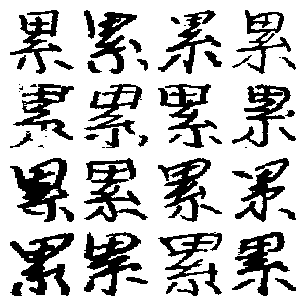 累累累累
累累累累
累累累累
累累累累